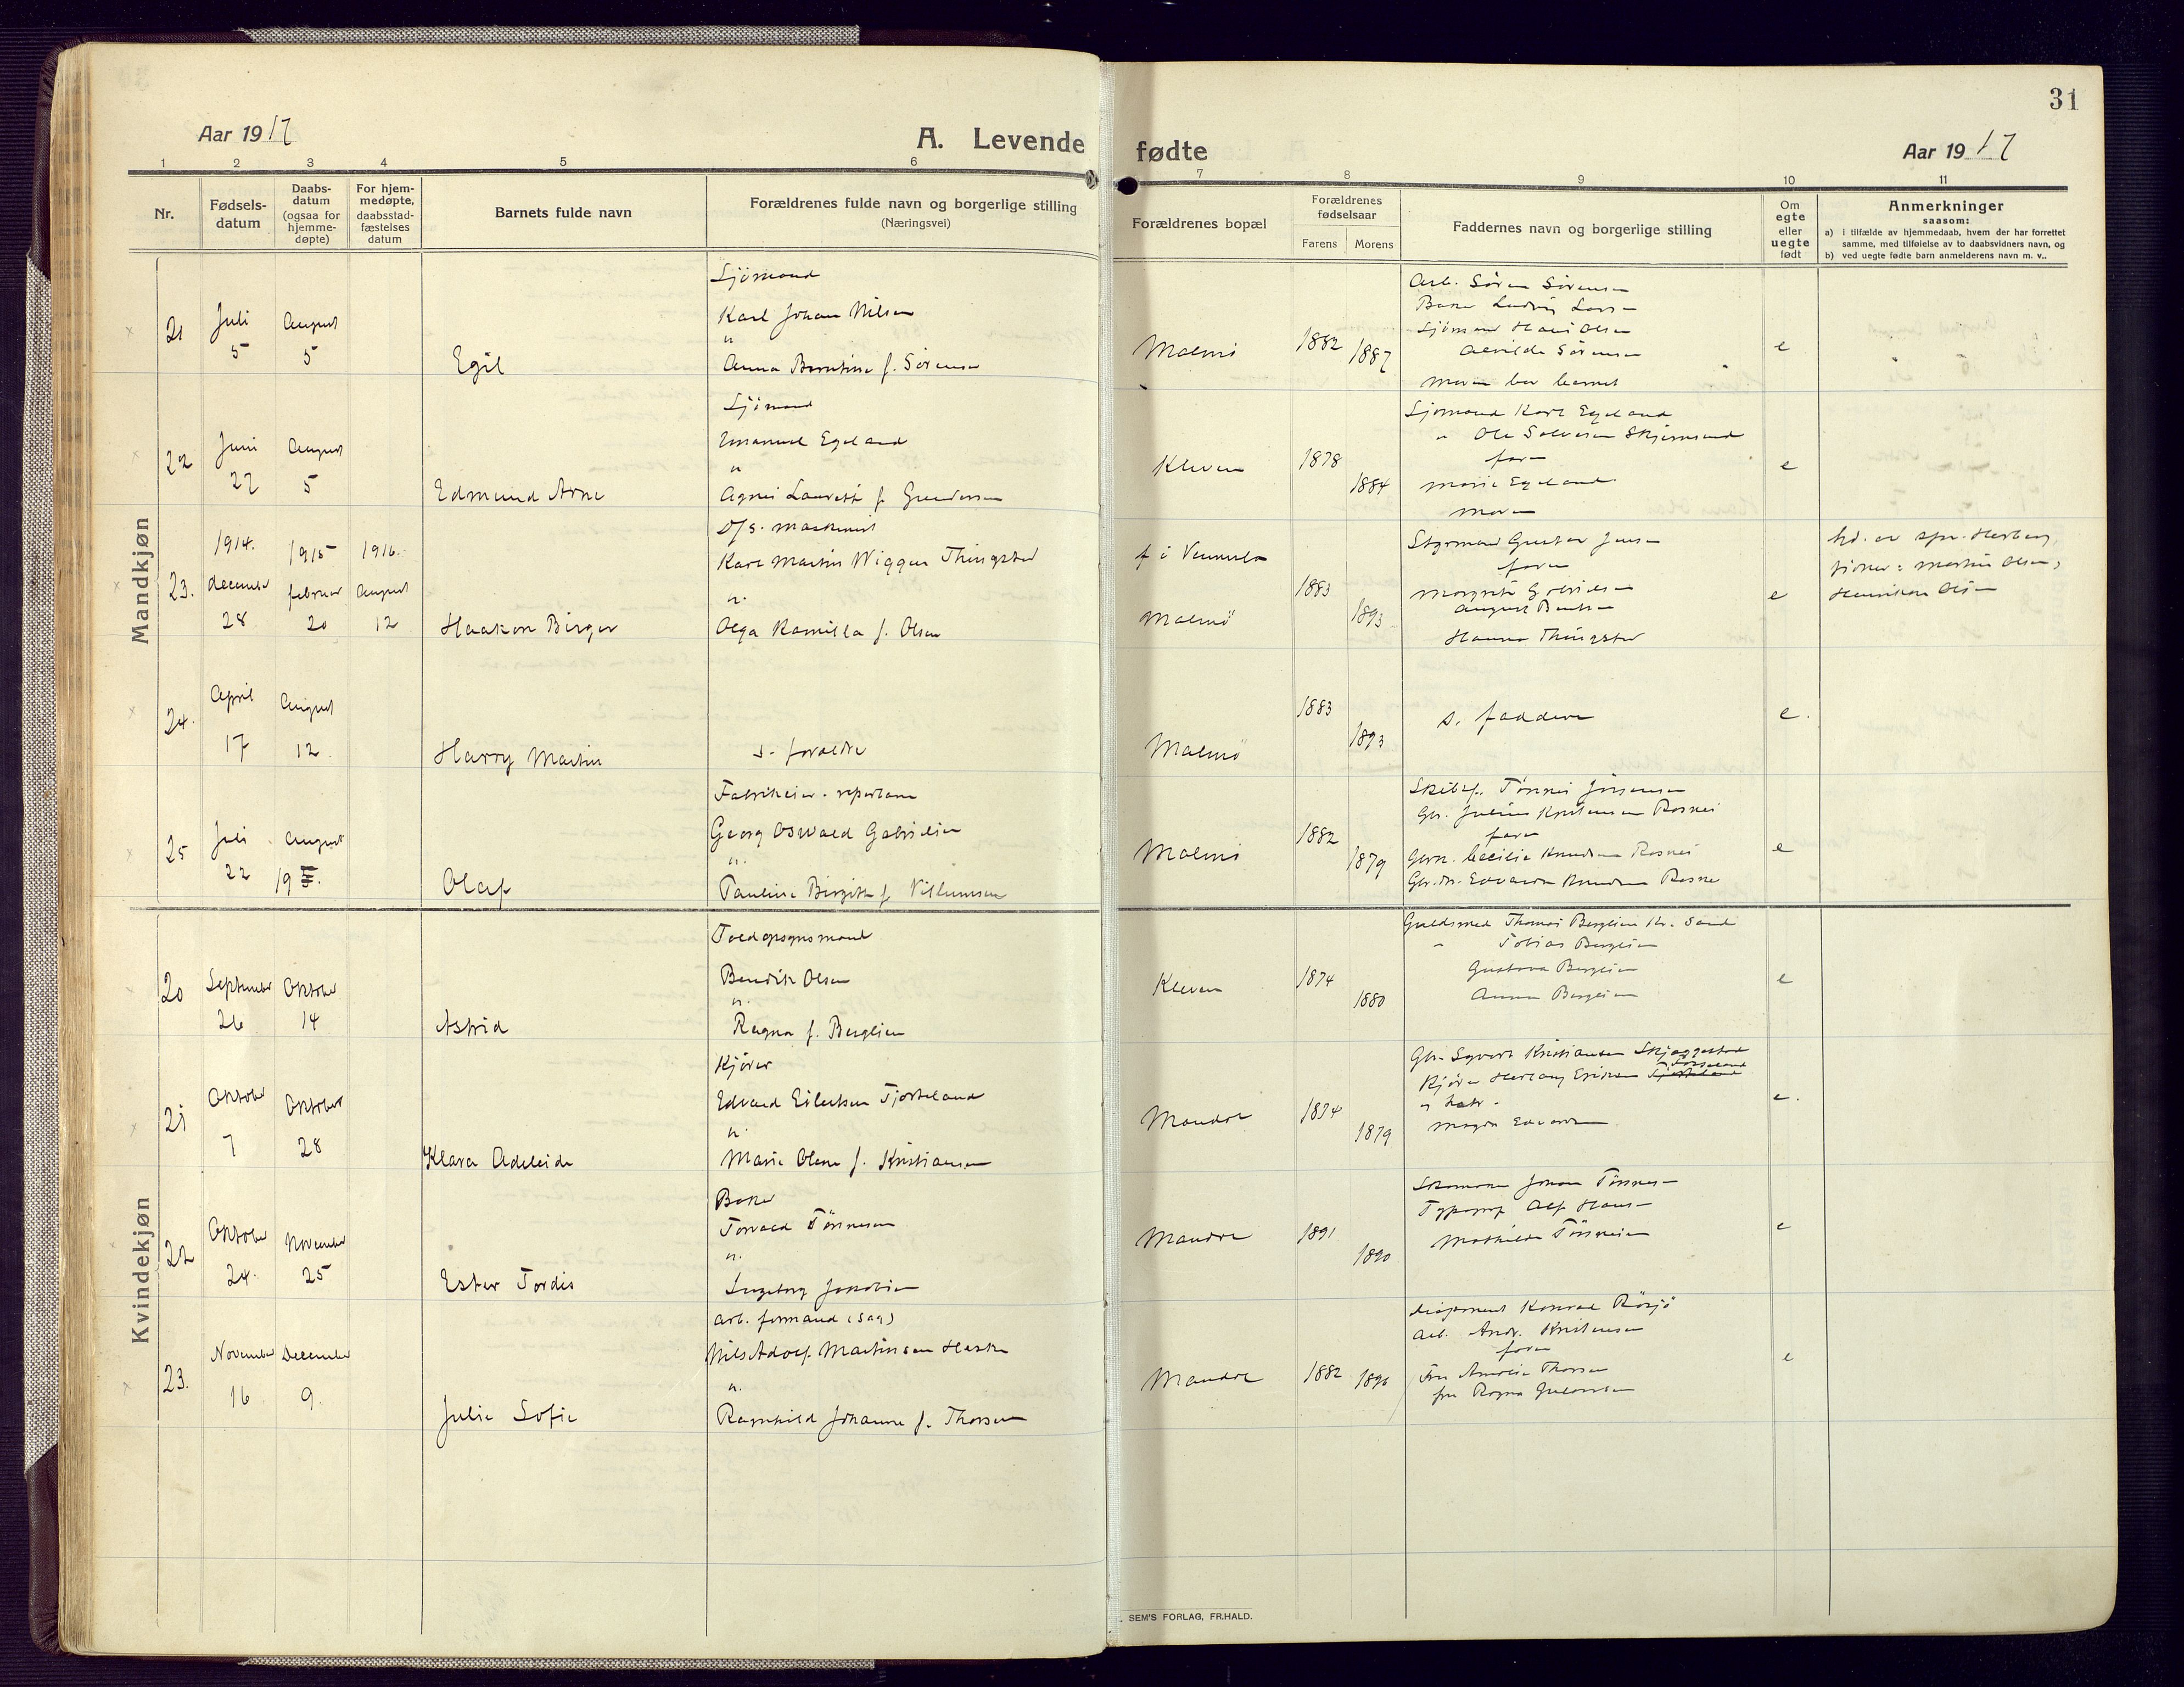 31
Aar 1917
A. Levende fødte
Aar 1917
1 2 3 4 5 6 7 8 9 10 11
Nr.
Fødsels-
datum
Daabs-
datum
(ogsaa for
hjemme-
døpte)
For hjem-
medøpte,
daabsstad-
fæstelses
datum
Barnets fulde navn
Forældrenes fulde navn og borgerlige stilling
(Næringsvei)
Forældrenes bopæl
Forældrenes
fødselsaar
Farens Morens
Faddernes navn og borgerlige stilling
Om
egte
eller
uegte
født
Anmerkninger
saasom:
a) i tilfælde av hjemmedaab, hvem der har forrettet
samme, med tilføielse av to daabsvidners navn, og
b) ved uegte fødte barn anmelderens navn m. v..
Mandkjøn
21
Juli
5
August
5
Egil
Sjömand
Karl Johan Nilsen
"
Anna Berntine f. Sörensen
Malmö
1882
1887
Arb. Sören Sörensen
Sjömand Hans Olsen
Alvilde Sörensen
moren bar barnet
e
22
Juni
27
August
5
Edmund Arne
Sjömand
Emanuel Egeland
"
Agnes Laurette f. Gundersen
Kleven
1878
1884
Sjömand Karl Egeland
" Ole Salvesen Skjernsund
faren
Marie Egeland
moren
e
23.
1914.
december
28
1915
februar
20
1916.
august
12
Haakon Birger
D/S. maskinist
Karl Martin Wigger Thingstad
"
Olga Kamilla f. Olsen
f i Vennesla
Malmö
1883
1893
Styrmand Gustav Jensen
faren
Margrete Gabrielsen
August Bentsen
Hanna Thingstad
e
24.
April
17
August
12
Harry Martin
s. foreldre
Malmö
1883
1893
s. faddere
e.
25
Juli
22
August
19
Olaf
Georg Oswald Gabrielsen
"
Pauline Birgitte f. Villumsen
Malmö
1882
1879
Skibsf. Tönnes Jörgensen
faren
e
Kvindekjøn
20
September
26
Oktober
14
Astrid
Toldopsynsmand
Bendik Olsen
"
Ragna f. Berglien
Kleven
1874
1880
Guldsmed Thomas Berglien Kr. Sand
" Tobias Berglien
Gustava Berglien
Anna Berglien
e
21
Oktober
7
Oktober
28
Klara Adeleide
Kjörer
Edvard Eilertsen Tjorteland
"
Marie Olene f. Kristiansen
Mandal
1874
1879
Gbr. Syvert Kristiansen Skjeggestad
e.
22
Oktober
24.
November
25
Ester Tordis
Baker
Torvald Tönnesen
"
Ingeborg Jakobsen
Mandal
1891
1890
Skomaker Johan Tönnesen
Typograf Alf Hansen
Mathilde Tönnesen
e
23.
November
16
December
9.
Julie Sofie
arb. formand (sag)
Nils Adolf Martinsen
"
Ragnhild Johanne f. Thorsen
Mandal
1882
1896
disponent Konrad Rösjö
arb. Andr. Kristensen
faren
Fru Amalie Thorsen
fru Ragna
e
SEM'S FORLAG, FR.HALD.